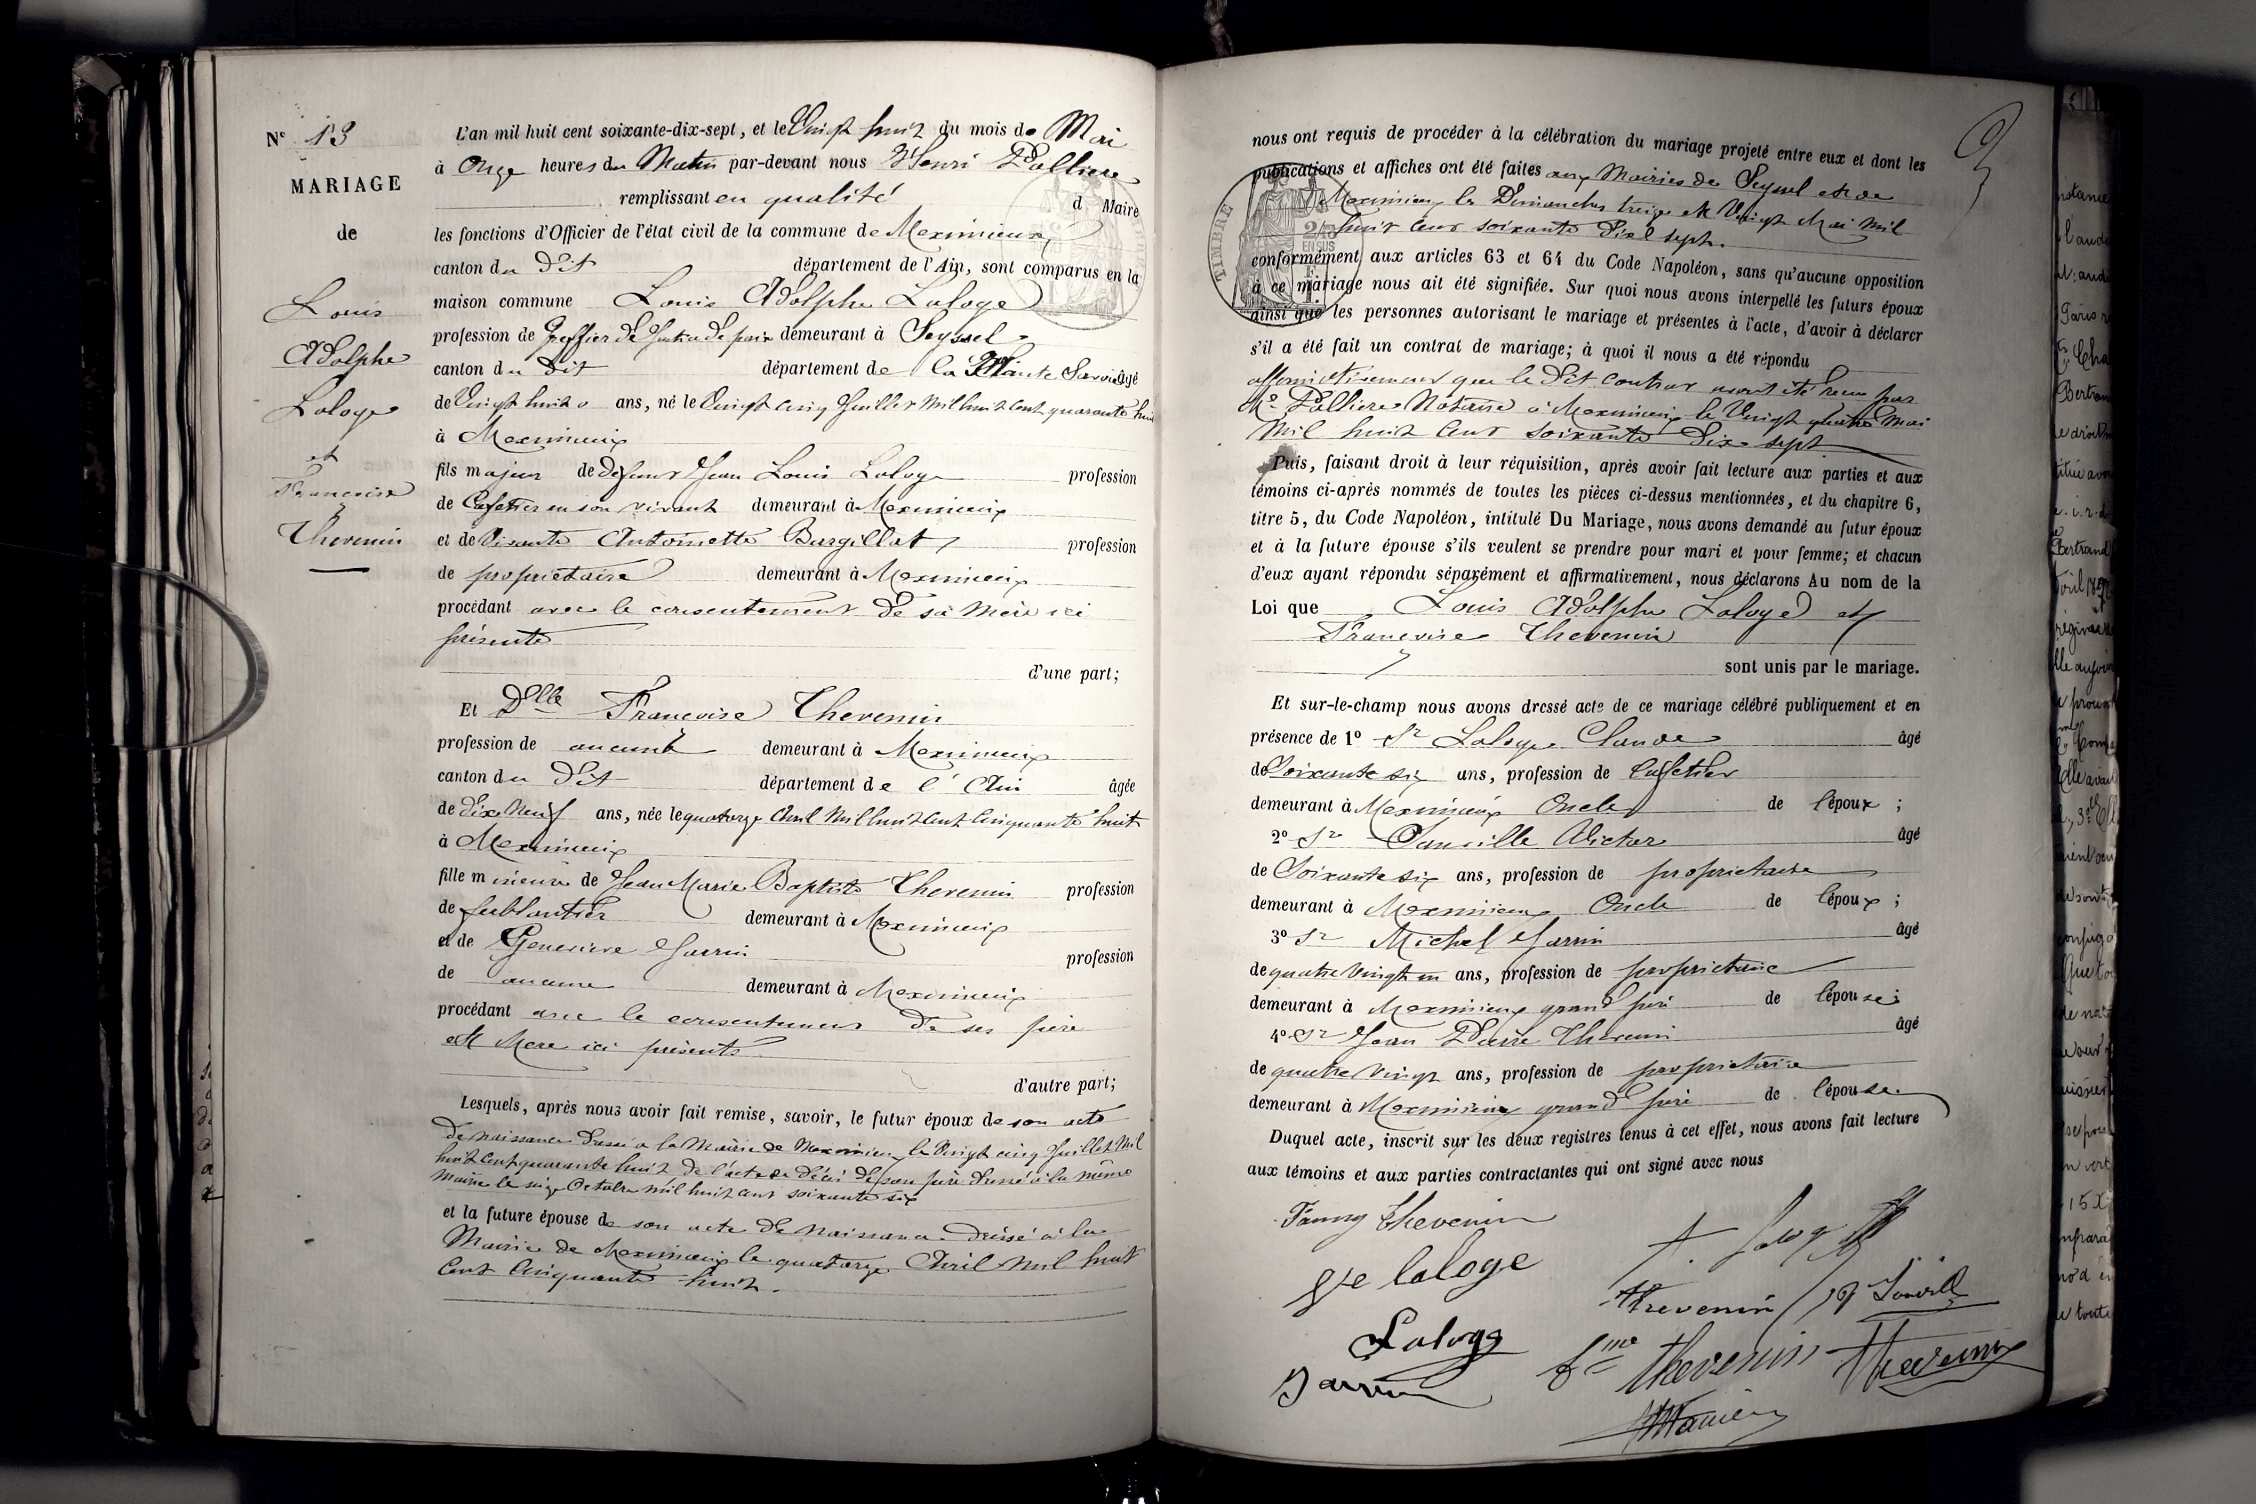 N° 13
MARIAGE
de
Louis
Adolphe
Laloge
et
Françoise
Thevenin
L'an mil huit cent soixante-dix-sept, et le Vingt huit du mois de Mai
à Onze heures du Matin par-devant nous Henri Pallière
remplissant en qualité d Maire
les fonctions d'Officier de l'état civil de la commune de Meximieux
canton du dit département de l'Ain, sont comparus en la
maison commune Louis Adolphe Laloge
profession de Greffier de Justice de paix demeurant à Seyssel
canton du dit département de la Haute Savoie âgé
de Vingt huit ans, né le Vingt cinq Juillet Mil huit cent quarante huit
à Meximieux
fils majeur de defunt Jean Louis Laloge profession
de Cafetier en son vivant demeurant à Meximieux
et de Vivante Antoinette Burgillat profession
de propriétaire demeurant à Meximieux
procédant avec le consentement de sa Mère ici
présente
d'une part;
Et Dlle Françoise Thevenin
profession de aucune demeurant à Meximieux
canton du dit département de l'Ain âgée
de dix Neuf ans, née le quatorze Avril Mil huit cent cinquante huit
à Meximieux
fille mineure de Jean Marie Baptiste Thevenin profession
de ferblantier demeurant à Meximieux
et de Geneviève Jarrin profession
de aucune demeurant à Meximieux
procédant avec le consentement de ses père
et Mere ici présents
d'autre part;
Lesquels, après nous avoir fait remise, savoir, le futur époux de son acte
de naissance dressé a la Mairie de Meximieux le Vingt cinq Juillet Mil
huit cent quarante huit de l'acte de décès de son père dressé à la même
Mairie le seize Octobre mil huit cent soixante six
et la future épouse de son acte de naissance dressé à la
Mairie de Meximieux le quatorze Avril Mil huit
Cent Cinquante huit.
nous ont requis de procéder à la célébration du mariage projeté entre eux et dont les
publications et affiches ont été faites aux Mairies de Seyssel et de
Meximieux les Dimanches treize et Vingt Mai Mil
huit cent soixante Dix sept.
conformément aux articles 63 et 64 du Code Napoléon, sans qu'aucune opposition
à ce mariage nous ait été signifiée. Sur quoi nous avons interpellé les futurs époux
ainsi que les personnes autorisant le mariage et présentes à l'acte, d'avoir à déclarer
s'il a été fait un contrat de mariage; à quoi il nous a été répondu
affirmativement que le dit contrat avait été reçu par
Me Pallière Notaire à Meximieux le Vingt quatre Mai
Mil huit cent soixante dix sept
Puis, faisant droit à leur réquisition, après avoir fait lecture aux parties et aux
témoins ci-après nommés de toutes les pièces ci-dessus mentionnées, et du chapitre 6,
titre 5, du Code Napoléon, intitulé Du Mariage, nous avons demandé au futur époux
et à la future épouse s'ils veulent se prendre pour mari et pour femme; et chacun
d'eux ayant répondu séparément et affirmativement, nous déclarons Au nom de la
Loi que Louis Adolphe Laloge et
Françoise Thevenin
sont unis par le mariage.
Et sur-le-champ nous avons dressé acte de ce mariage célébré publiquement et en
présence de 1° Sr Laloge Claude âgé
de Soixante six ans, profession de Cafetier
demeurant à Meximieux Oncle de l'époux ;
2° Sr Victor âgé
de Soixante six ans, profession de propriétaire
demeurant à Meximieux Oncle de l'époux ;
3° Sr Michel Jarrin âgé
de quatre Vingt un ans, profession de propriétaire
demeurant à Meximieux grand père de l'épouse ;
4° Sr Jean Pierre Thevenin âgé
de quatre Vingt ans, profession de propriétaire
demeurant à Meximieux grand père de l'épouse
Duquel acte, inscrit sur les deux registres tenus à cet effet, nous avons fait lecture
aux témoins et aux parties contractantes qui ont signé avec nous
Fanny Thevenin
A. Laloge
Ve laloge
Thevenin
Laloge
Jarrin
thevenin
Thevenin
TIMBRE